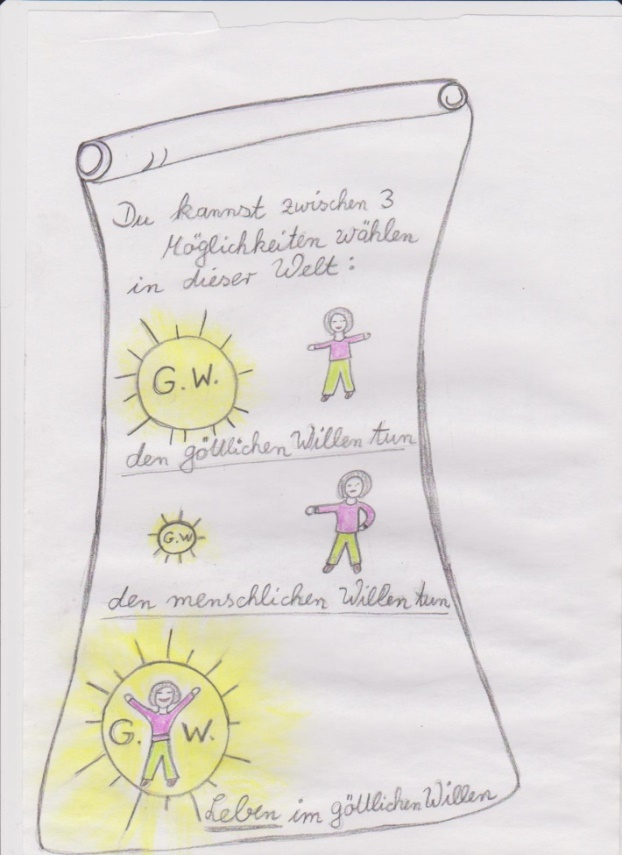 Du kannst zwischen 3
Möglichkeiten wählen
in dieser Welt:
G.W.
den göttlichen Willen tun
G.W
den menschlichen Willen tun
G. W.
Leben im göttlichen Willen